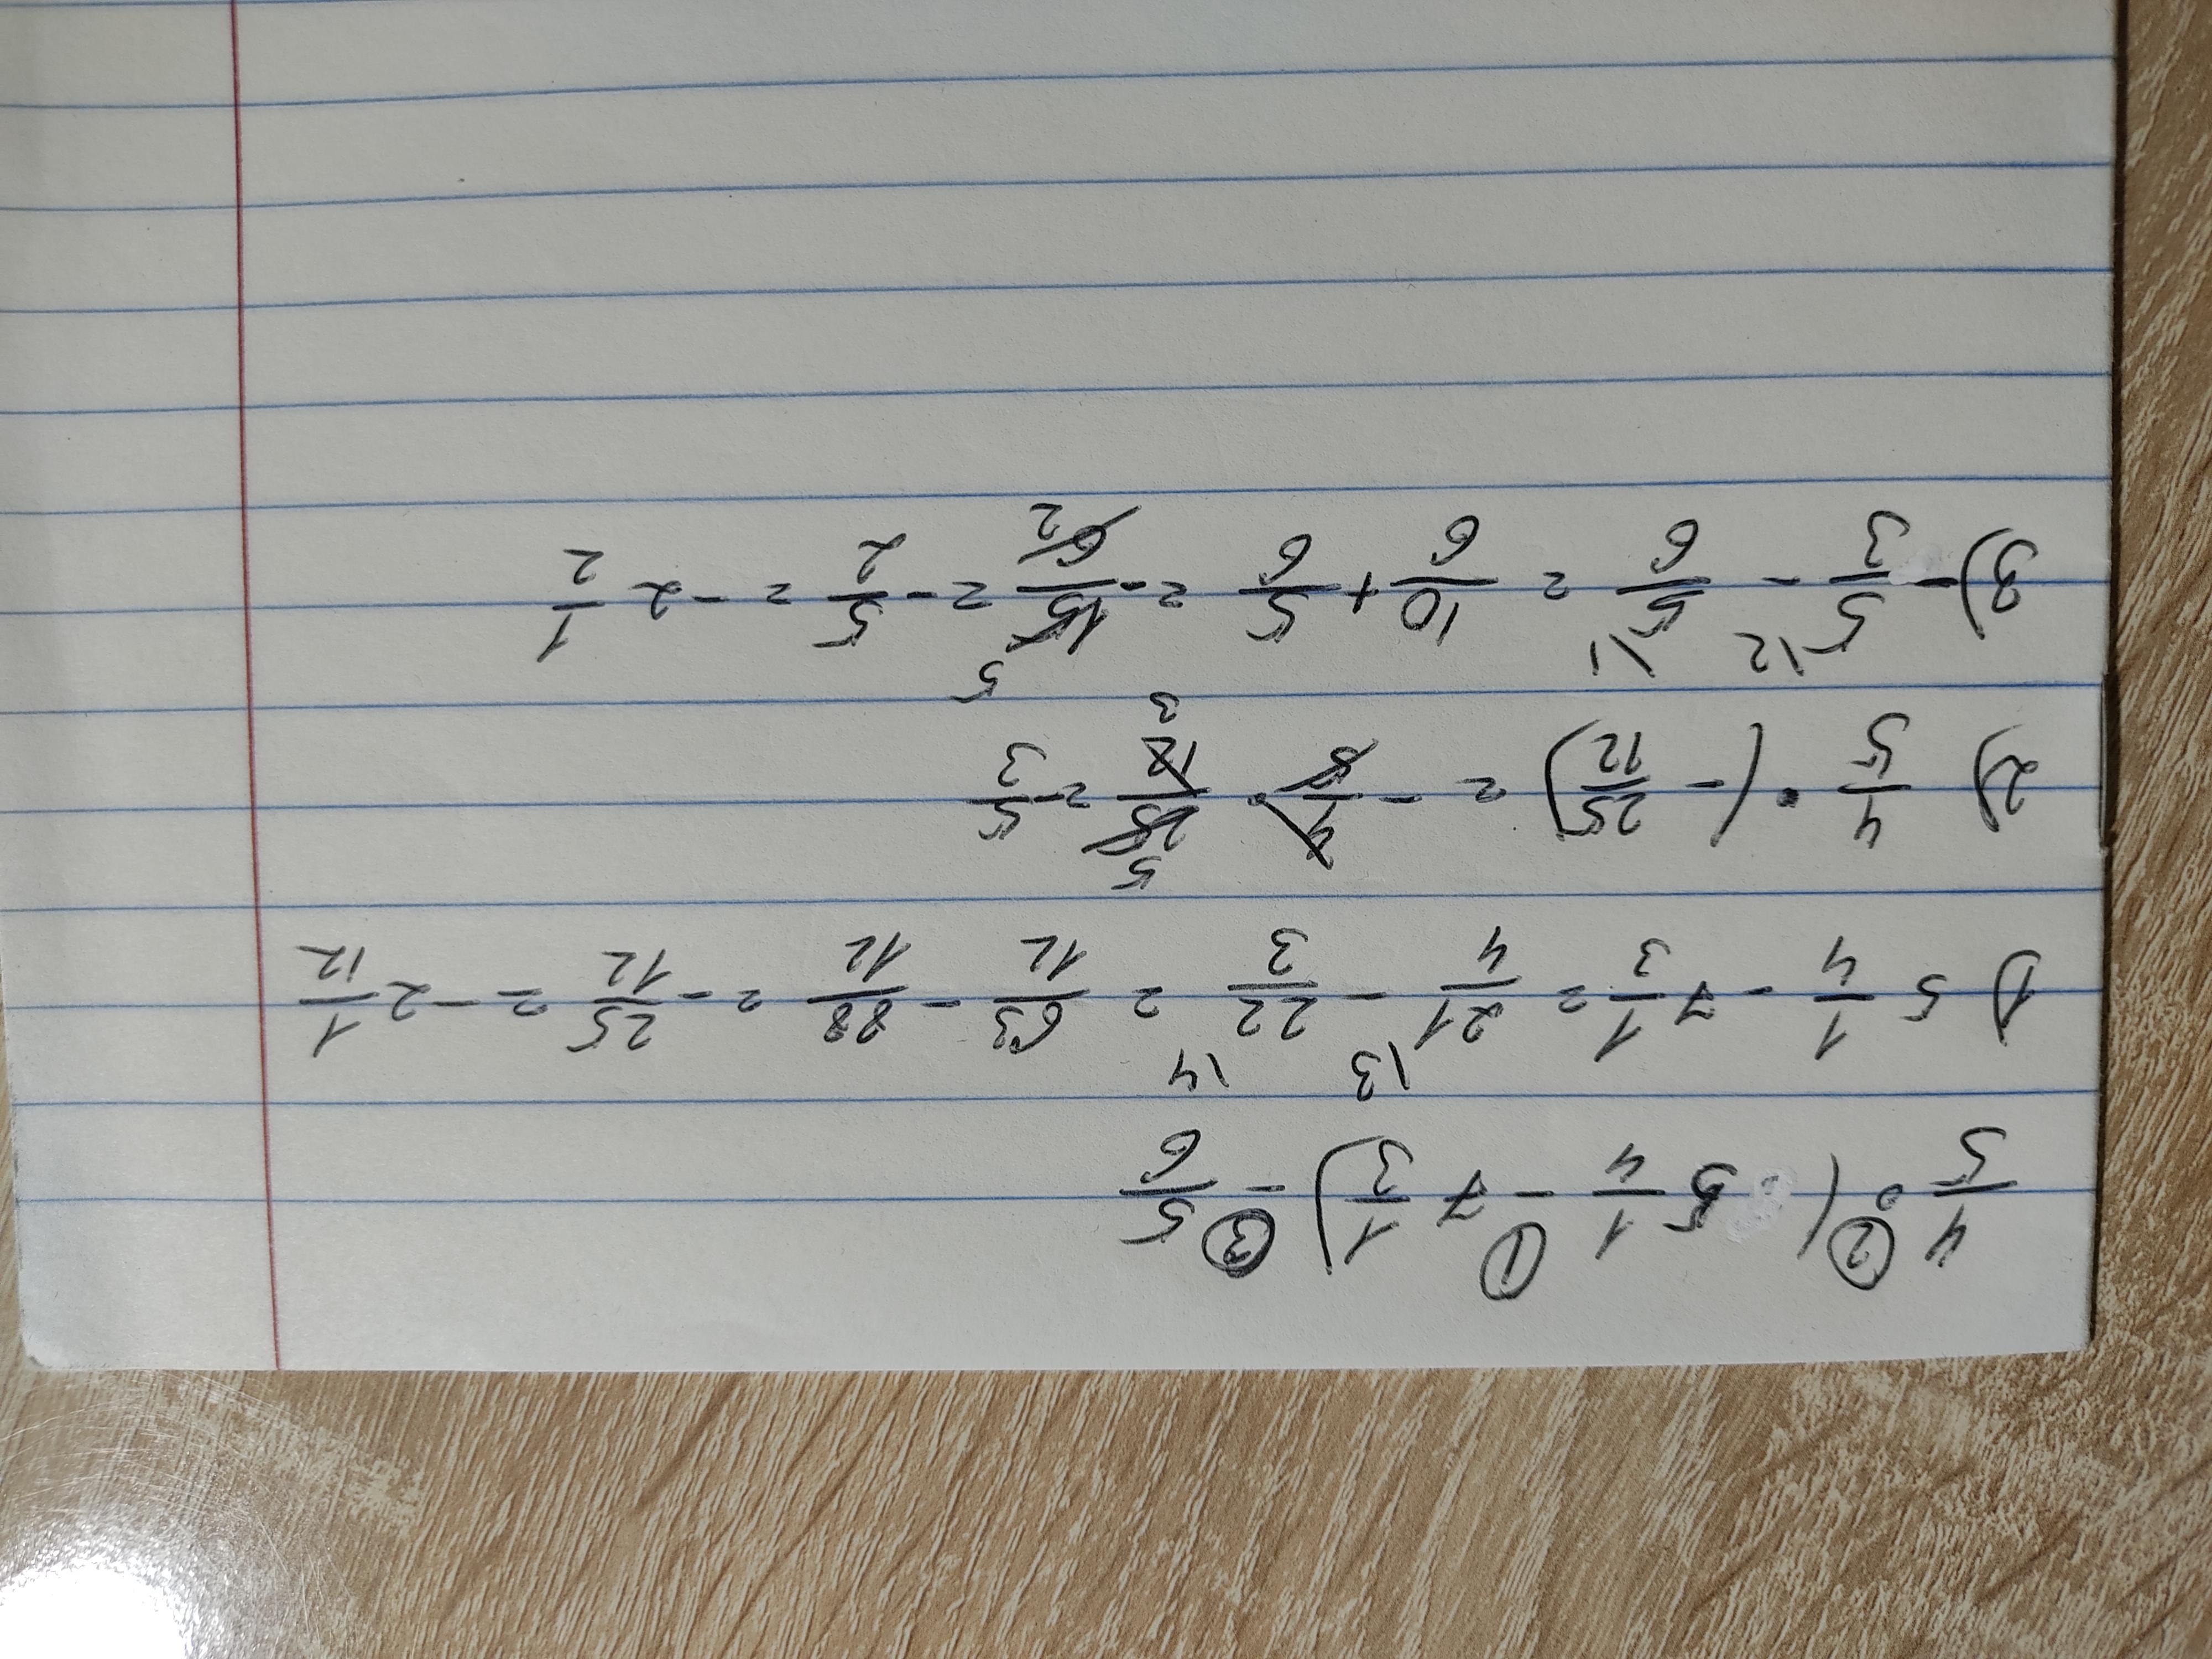 4/5 · (5 1/4 - 7 1/3) - 5/6 ② ① ③
1) 5 1/4 - 7 1/3 = 21/4 \3 - 22/3 \4 = 63/12 - 88/12 = - 25/12 = - 2 1/12
2) 4/5 · (- 25/12) = - 4/5 · 25/12 5 3 = - 5/3
3) - 5/3 \2 - 5/6 \1 = 10/6 + 5/6 = - 15/6 5 2 = - 5/2 = - 2 1/2